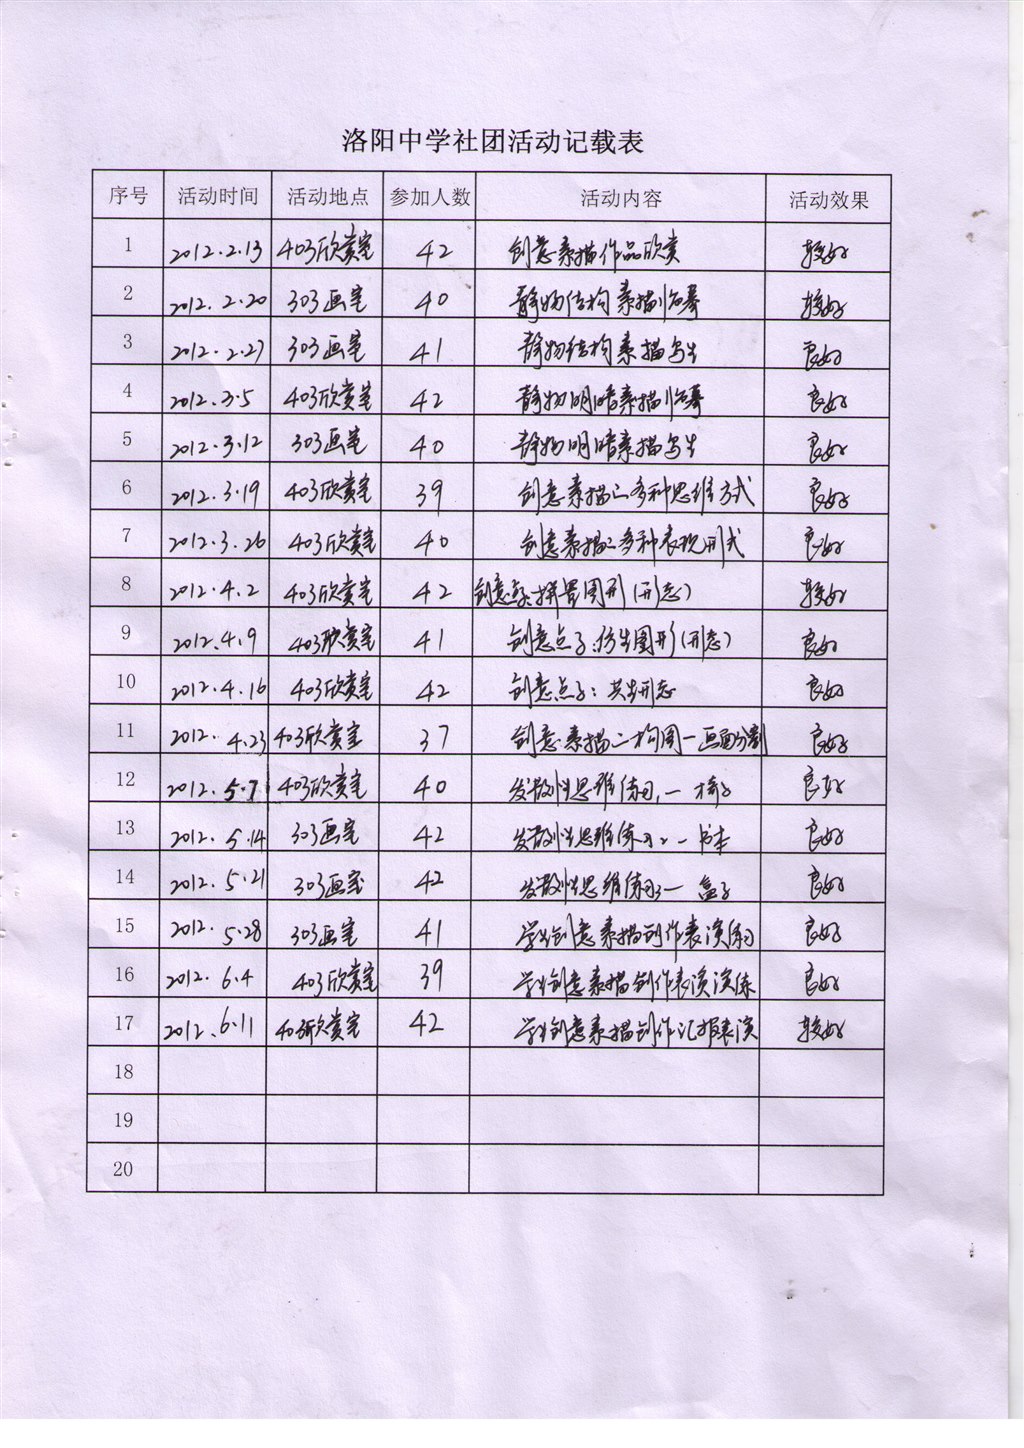 洛阳中学社团活动记载表
序号 活动时间 活动地点 参加人数 活动内容 活动效果
1 2012.2.13 403欣赏室 42 创意素描作品欣赏 较好
2 2012.2.20 303画室 40 静物结构素描临摹 较好
3 2012.2.27 303画室 41 静物结构素描写生 良好
4 2012.3.5 403欣赏室 42 静物明暗素描临摹 良好
5 2012.3.12 303画室 40 静物明暗素描写生 良好
6 2012.3.19 403欣赏室 39 创意素描之多种思维方式 良好
7 2012.3.26 403欣赏室 40 创意素描之多种表现形式 良好
8 2012.4.2 403欣赏室 42 创意点：异置图形(形态) 较好
9 2012.4.9 403欣赏室 41 创意点子:仿生图形(形态) 良好
10 2012.4.16 403欣赏室 42 创意点子：共生形态 良好
11 2012.4.23 403欣赏室 37 创意素描之构图一画面分割 良好
12 2012.5.7 403欣赏室 40 发散性思维练习1一椅子 良好
13 2012.5.14 303画室 42 发散性思维练习2一书本 良好
14 2012.5.21 303画室 42 发散性思维练习3一盒子 良好
15 2012.5.28 303画室 41 学生创意素描创作表演练习 良好
16 2012.6.4 403欣赏室 39 学生创意素描创作表演演练 良好
17 2012.6.11 403欣赏室 42 学生创意素描创作汇报表演 较好
18
19
20